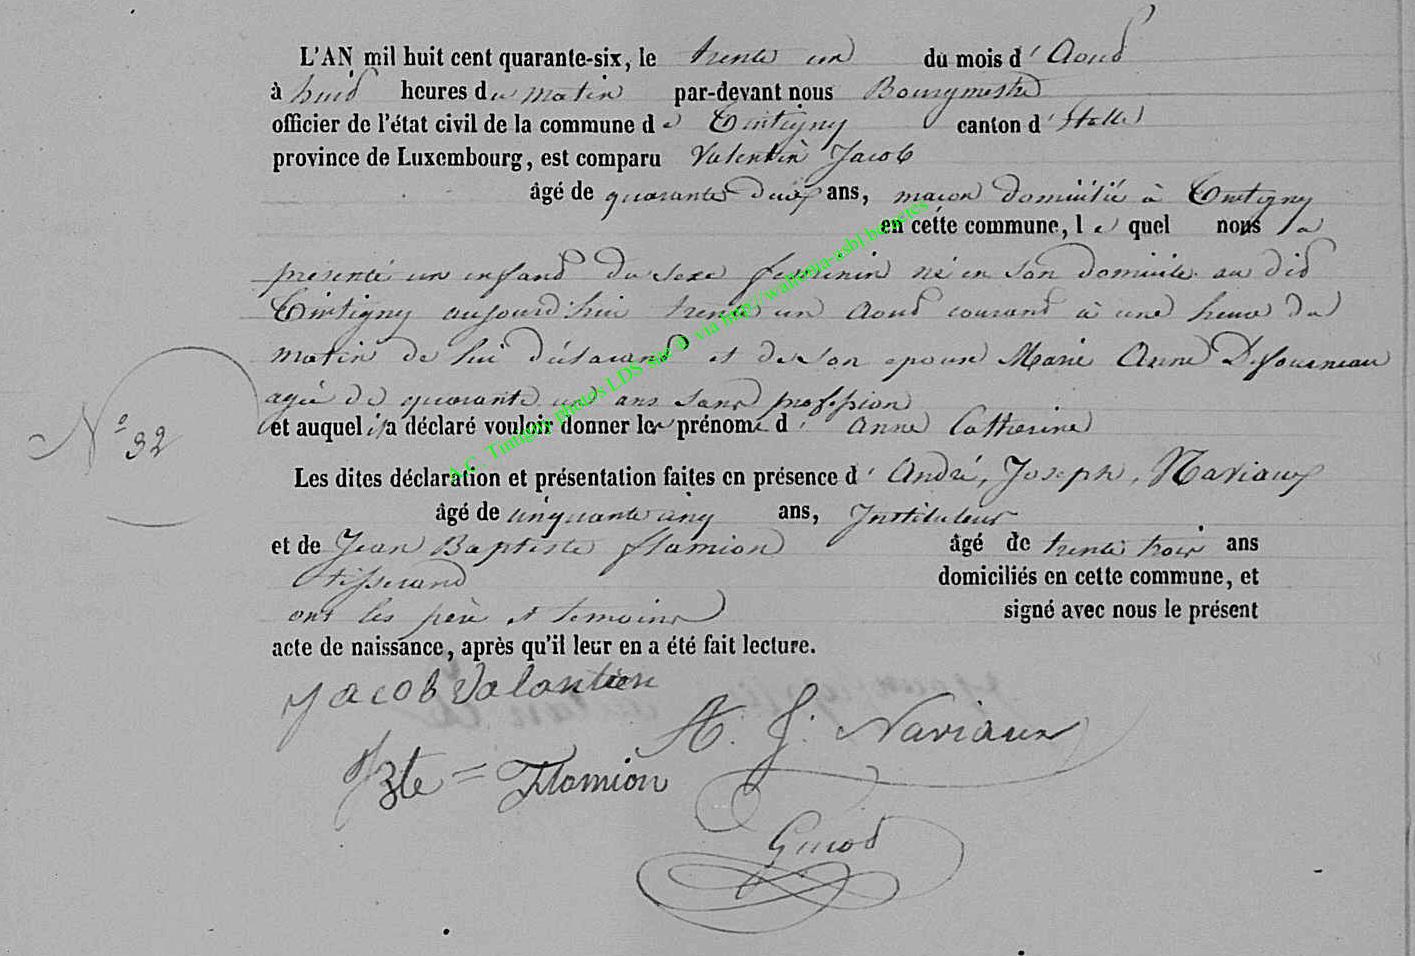 L'AN mil huit cent quarante-six, le trente un du mois d' Aout
à huit heures du matin par-devant nous Bourgmestre
officier de l'état civil de la commune de Tintigny canton d' Etalle
province de Luxembourg, est comparu Valentin Jacob
âgé de quarante deux ans, maçon domicilié à Tintigny
en cette commune, lequel nous a
présenté un enfant du sexe feminin né en son domicile au dit
Tintigny aujourd'hui trente un Aout courant à une heure du
matin de lui déclarant et de son epouse Marie Anne Defourneau
agée de quarante un ans sans profession
et auquel il a déclaré vouloir donner les prénoms d' Anne Catherine
N° 32
Les dites déclaration et présentation faites en présence d' André, Joseph, Naviaux
âgé de cinquante cinq ans, Instituteur
et de Jean Baptiste flamion âgé de trente trois ans
tisserand domiciliés en cette commune, et
ont les père et temoins signé avec nous le présent
acte de naissance, après qu'il leur en a été fait lecture.
Jacob Valantien
A. J. Naviaux
JBte = Flamion
Guiot
A.C. Tintigny photos LDS via http://wallonia-asbl.be/actes